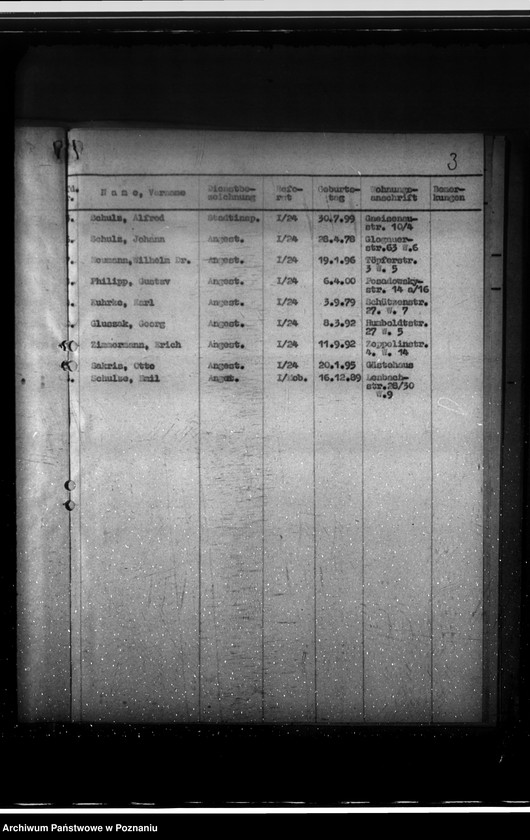 3
Name, Vorname Dienstbe- Refe- Geburts- Wohnungs- Bemer-
zeichnung rat tag anschrift kungen
Schulz, Alfred Stadtinsp. I/24 30.7.99 Gneisenau-
str. 10/4
Schulz, Johann Angest. I/24 28.4.78 Glogauer-
str.63 W.6
Neumann,Wilhelm Dr. Angest. I/24 19.1.96 Töpferstr.
3 W. 5
Philipp, Gustav Angest. I/24 6.4.00 Posadowsky-
str. 14 a/16
Kuhrke, Karl Angest. I/24 3.9.79 Schützenstr.
27. W. 7
Glussak, Georg Angest. I/24 8.3.92 Humboldtstr.
27 W. 5
Zimmermann, Erich Angest. I/24 11.9.92 Zeppelinstr.
4. W. 14
Sakris, Otto Angest. I/24 20.1.95 Gästehaus
Schulze, Emil Angest. I/Mob. 16.12.89 Lenbach-
str.28/30
W.9
Archiwum Państwowe w Poznaniu